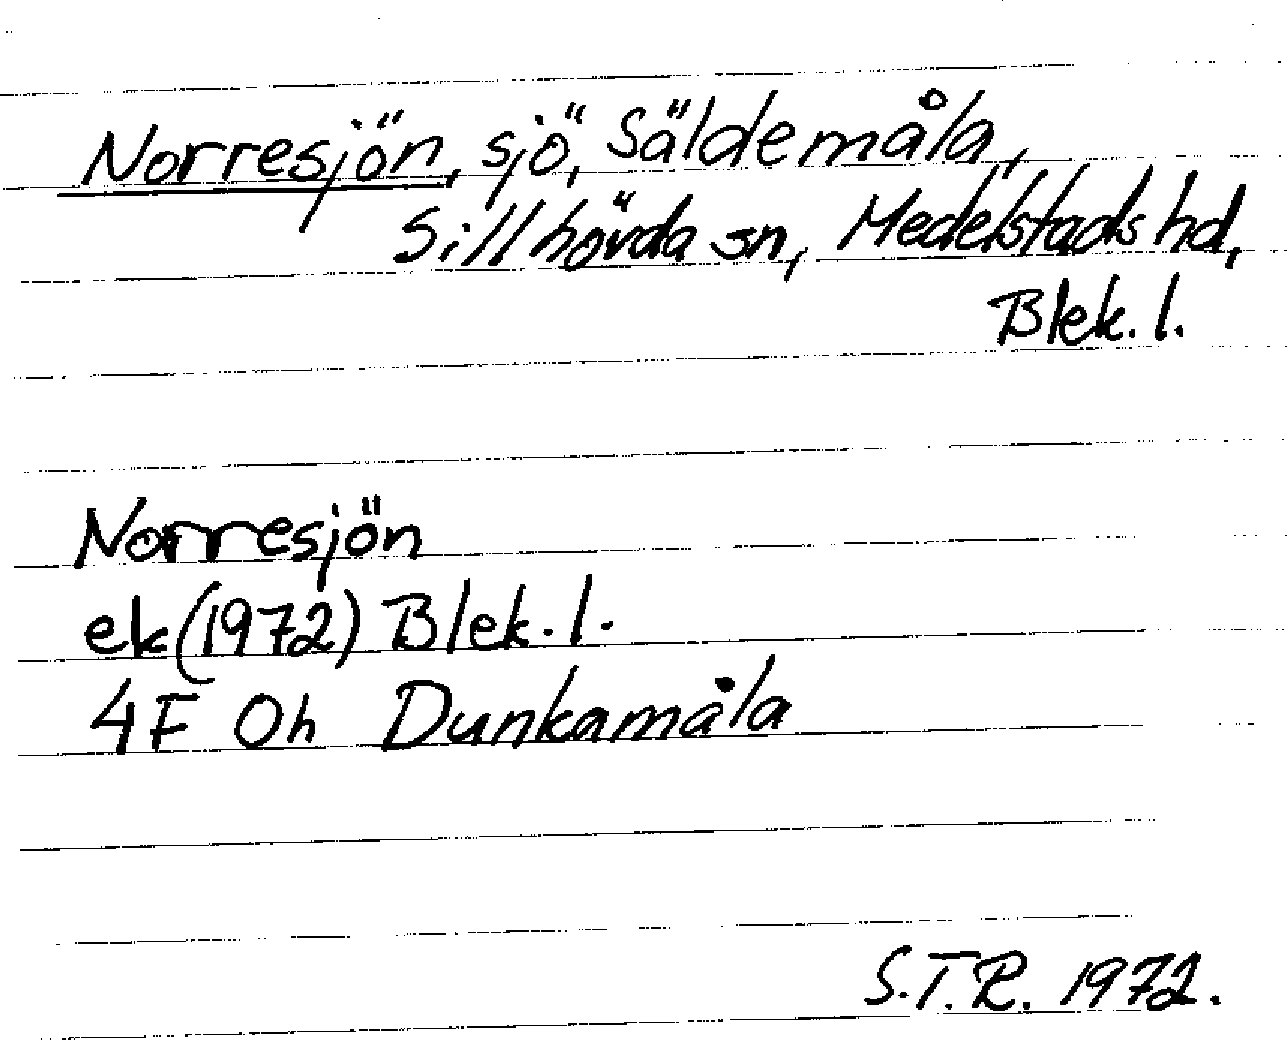 Norresjön, sjö, Säldemåla,
Sillhövda sn, Medelstads hd,
Blek. l.
Norresjön
ek (1972) Blek. l.
4F 0h Dunkamåla
S.T.R. 1972.